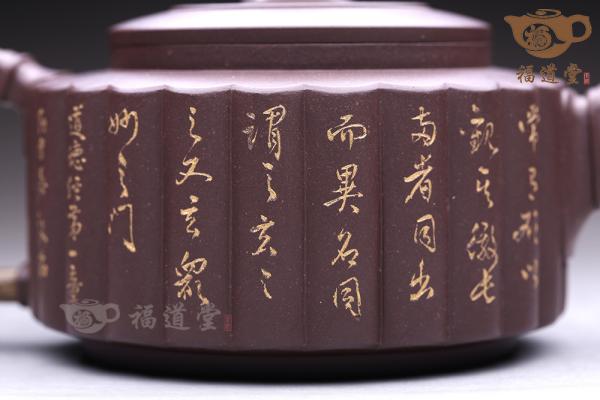 常有欲以
觀其徼此
两者同出
而異名同
谓之玄之
之又玄衆
妙之门
道德经第一章
福道堂
福道堂